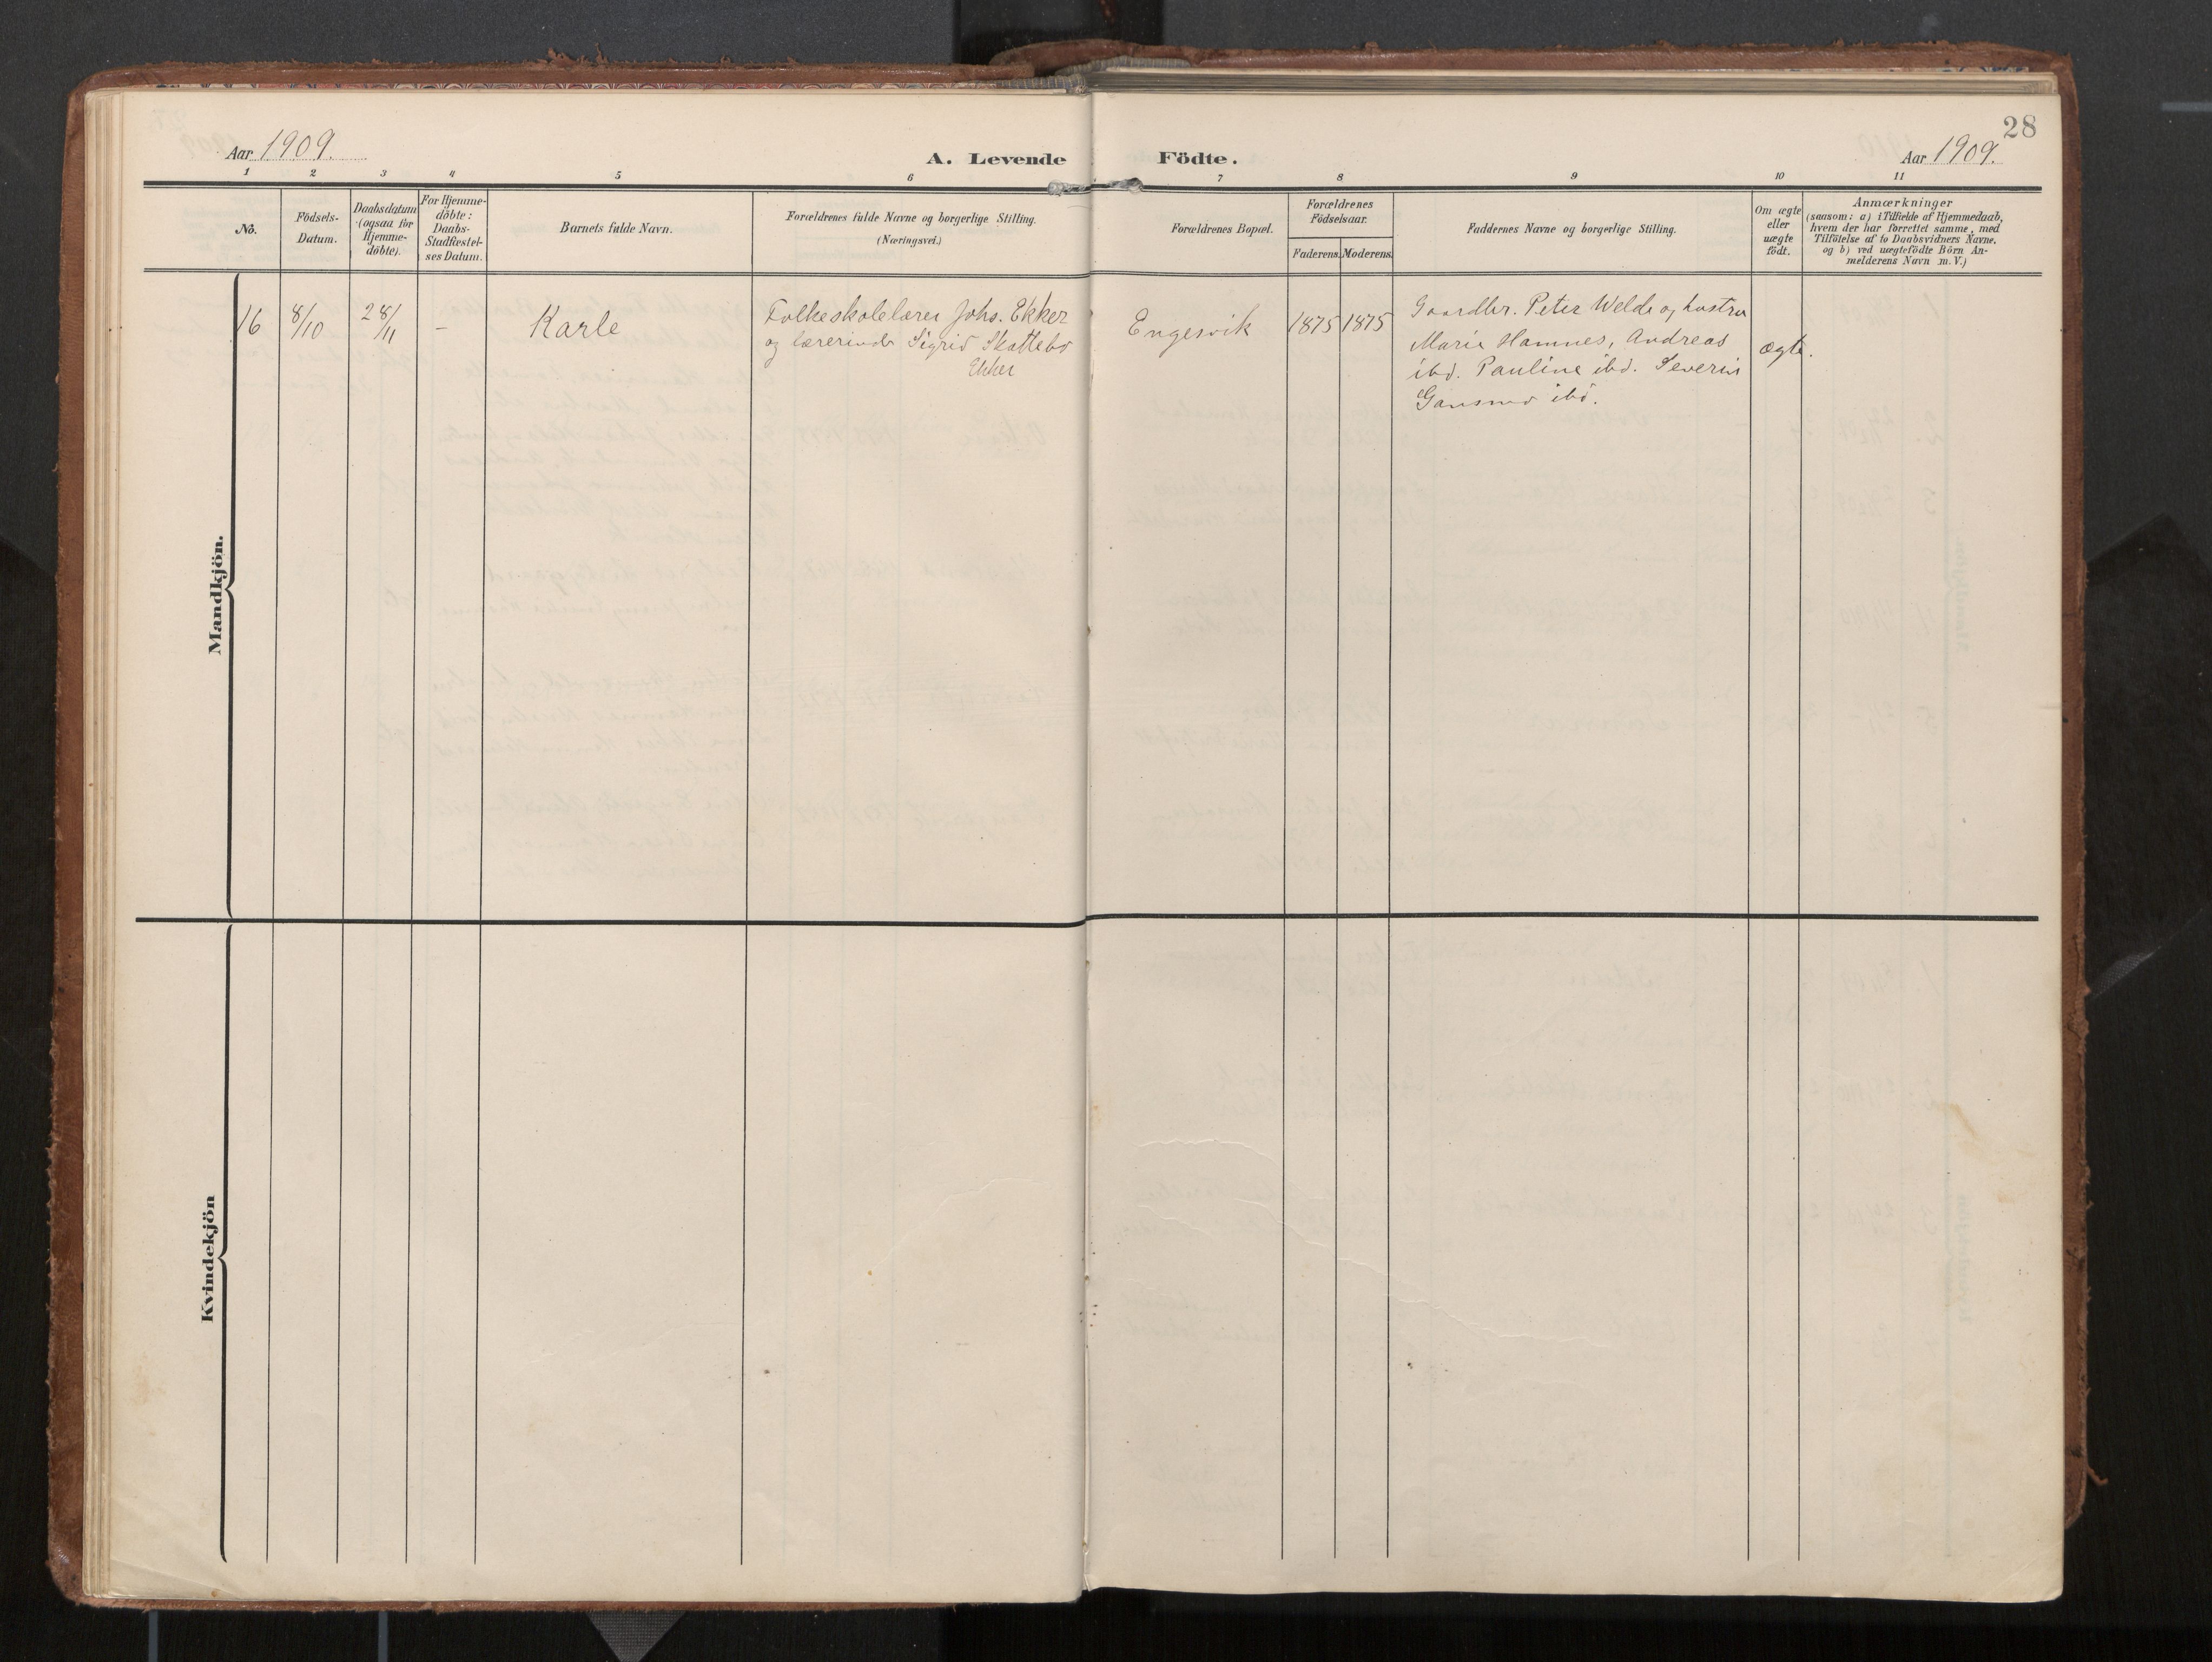 28
Aar 1909.
A. Levende Födte.
Aar 1909.
1 2 3 4 5 6 7 8 9 10 11
No.
Födsels-
Datum.
Daabsdatum
(ogsaa for
Hjemme-
döbte).
For Hjemme-
döbte:
Daabs-
Stadfæstel-
ses Datum.
Barnets fulde Navn.
Forældrenes fulde Navne og borgerlige Stilling.
(Næringsvei.)
Forældrenes Bopæl.
Forældrenes
Födselsaar.
Faderens. Moderens.
Faddernes Navne og borgerlige Stilling.
Om ægte
eller
uægte
födt.
Anmærkninger
(saasom: a) i Tilfælde af Hjemmedaab,
hvem der har forrettet samme, med
Tilföielse af to Daabsvidners Navne,
og b) ved uægtefödte Börn An-
melderens Navn m. V.)
Mandkjön.
16
8/10
28/11
–
Karle
Folkeskolelærer Johs. Ekker
og lærerinde Sigrid Skattebo
Ekker
Engesvik
1875 1875
Gaardbr. Peter Welde og hustru
Marie Hamnes, Andreas
ibd. Pauline ibd. Severin
Gansmo ibd.
ægte.
Kvindekjön